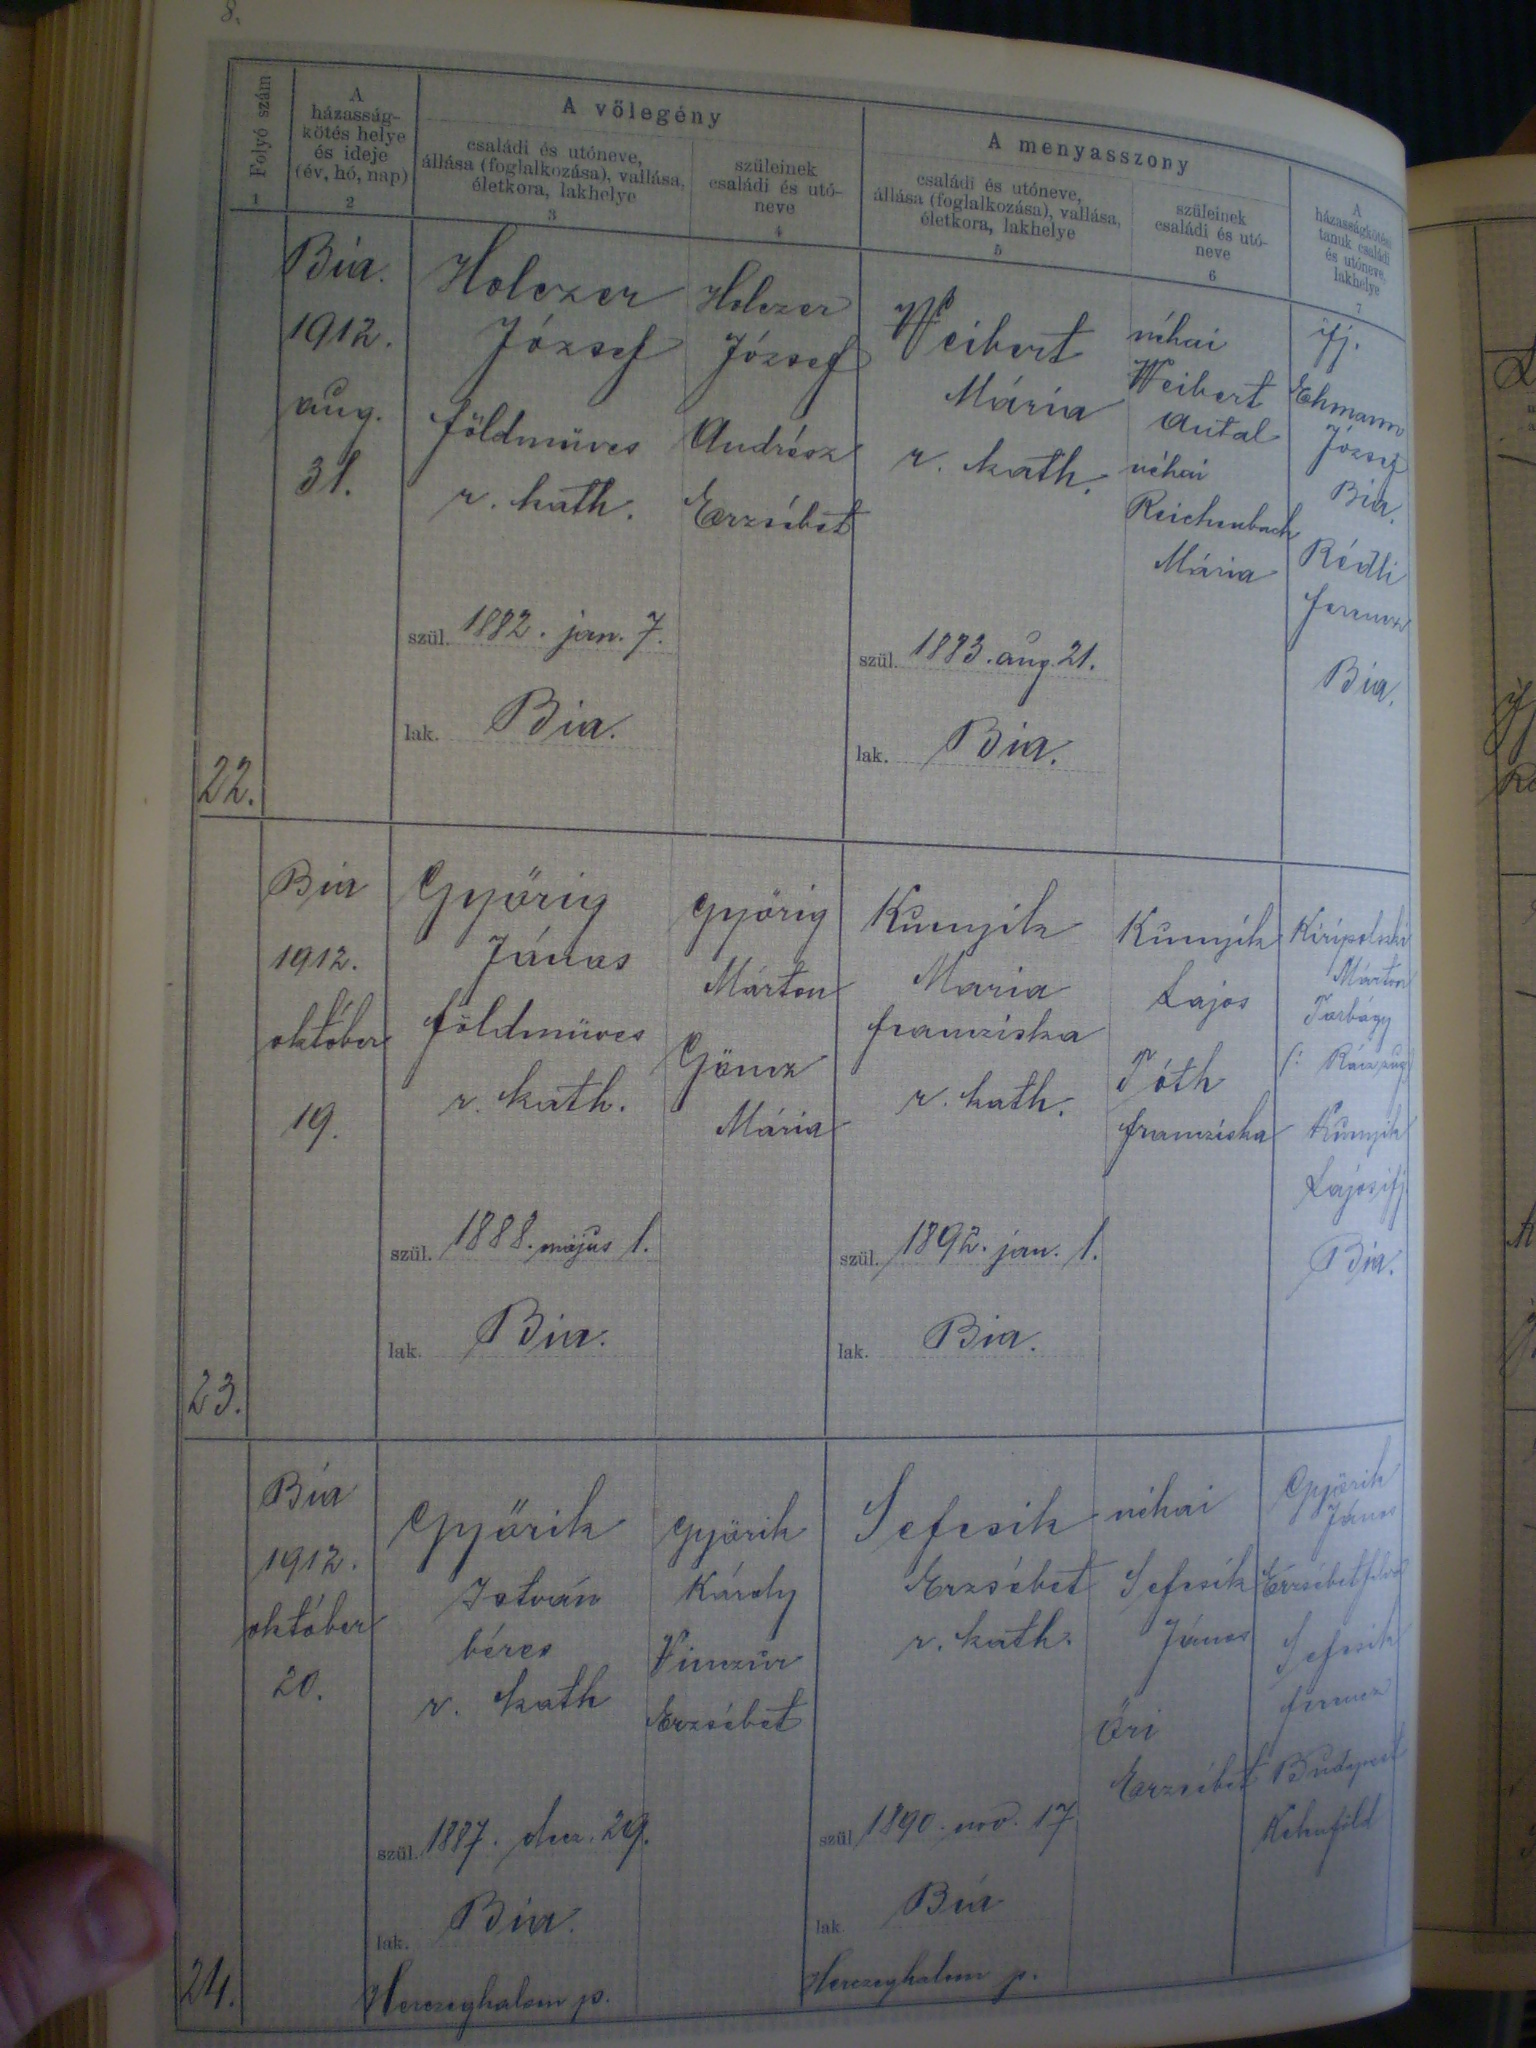 8.
Folyó szám
A
házasság-
kötés helye
és ideje
(év, hó, nap)
A vőlegény
családi és utóneve,
állása (foglalkozása), vallása,
életkora, lakhelye
szüleinek
családi és utó-
neve
A menyasszony
családi és utóneve,
állása (foglalkozása), vallása,
életkora, lakhelye
szüleinek
családi és utó-
neve
A
házasságkötési
tanuk családi
és utóneve,
lakhelye
1
2
3
4
5
6
7
22.
Bia.
1912.
aug.
31.
Holczer
József
földmüves
r. kath.
szül. 1882. jan. 7.
lak. Bia.
Holczer
József
Andrész
Erzsébet
Weibert
Mária
r. kath.
szül. 1883. aug. 21.
lak. Bia.
néhai
Weibert
Antal
néhai
Reichenbach
Mária
ifj.
Ehmann
József
Bia.
Rédli
Ferencz
Bia.
23.
Bia
1912.
október
19.
Györig
János
földmüves
r. kath.
szül. 1888. május 1.
lak. Bia.
Györig
Márton
Göncz
Mária
Kunyik
Maria
Franziska
r. kath.
szül. 1892. jan. 1.
lak. Bia.
Kunyik
Lajos
Tóth
Franziska
Kiripolszki
Márton
Torbágy
Kunyik
Lajos ifj.
Bia.
24.
Bia
1912.
október
20.
Györik
István
béres
r. kath
szül. 1887. decz. 29.
lak. Bia.
Herczeghalom p.
Györik
Károly
Vinczur
Erzsébet
Sefcsik
Erzsébet
r. kath.
szül. 1890. nov. 17
lak. Bia
Herczeghalom p.
néhai
Sefcsik
János
Őri
Erzsébet
Györik
János
Sefcsik
Ferencz
Budapest